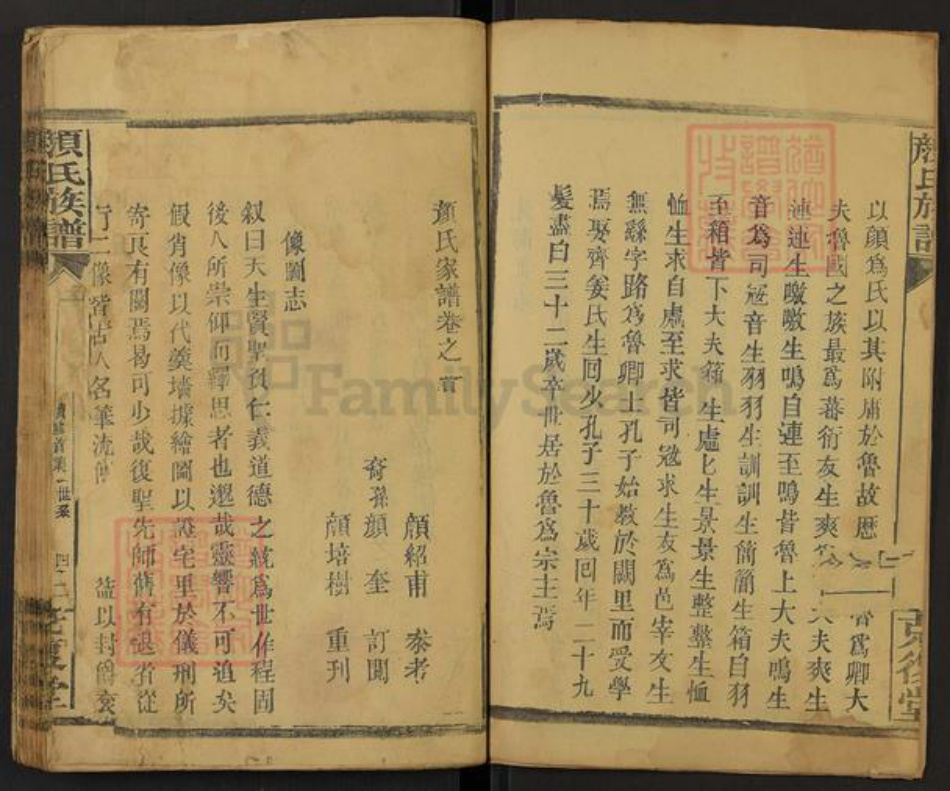 顏氏族譜
克復堂
以顏爲氏以其附庸於魯故歷 爲卿大
夫魯國之族最爲蕃衍友生爽 夫爽生
連連生噭噭生鳴自連至鳴皆魯上大夫鳴生
音爲司冦音生羽羽生訓訓生簡簡生箱自羽
至箱皆下大夫箱生虛虛生景景生整整生恤
恤生求自虛至求皆司冦求生友爲邑宰友生
無繇字路爲魯卿士孔子始教於闕里而受學
焉娶齊姜氏生囘少孔子三十歲囘年二十九
髮盡白三十二歲卒世居於魯爲宗主焉
顏氏家譜卷之首
顏紹甫 叅考
裔孫顏 奎 訂閱
顏培樹 重刋
像圖志
叙曰天生賢聖負仁義道德之統爲世作程固
後人所崇仰而繹思者也邈哉靈響不可追矣
假肖像以代羹墻據繪圖以證宅里於儀刑所
寄良有關焉曷可少哉復聖先師舊有 從
行二像皆古人名筆流傳 益以封爵衮
顏氏族譜
復堂
FamilySearch